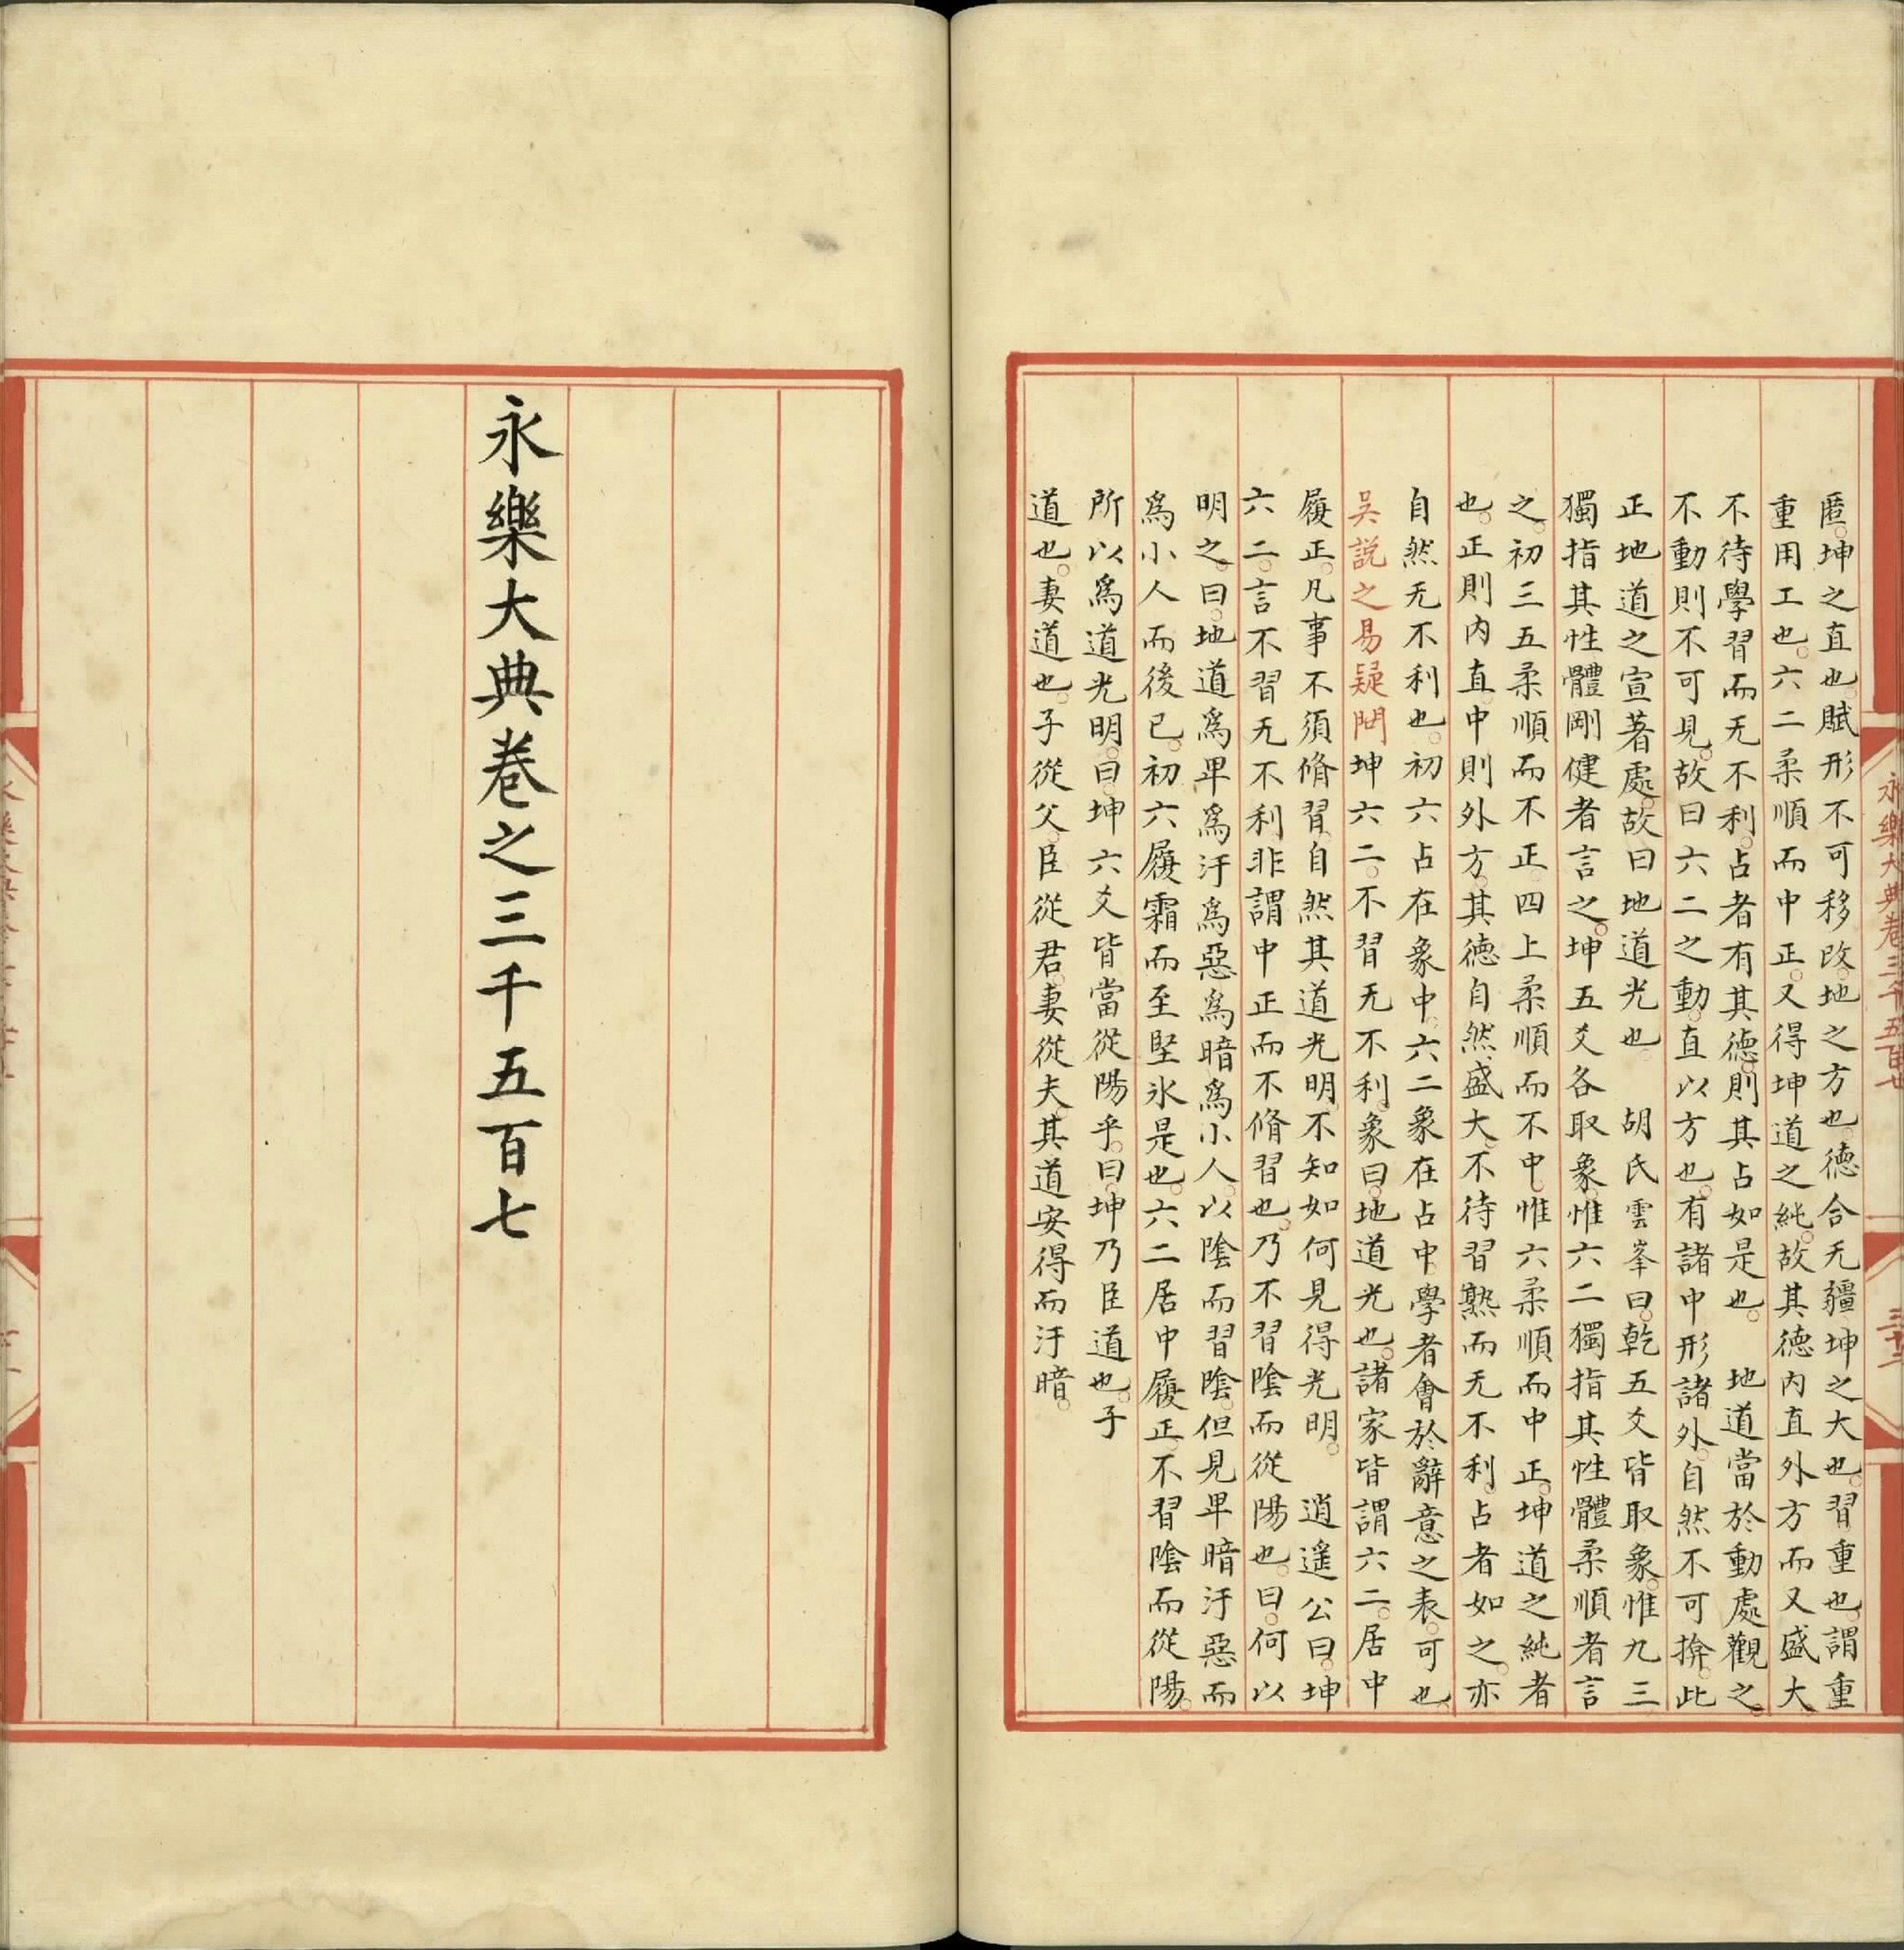 永樂大典卷三千五百七
三十二
匿坤之直也賦形不可移改地之方也德合无疆坤之大也習重也謂重
重用工也六二柔順而中正又得坤道之純故其德內直外方而又盛大
不待學習而无不利占者有其德則其占如是也 地道當於動處觀之
不動則不可見故曰六二之動直以方也有諸中形諸外自然不可揜此
正地道之宣著處故曰地道光也 胡氏雲峯曰乾五爻皆取象惟九三
獨指其性體剛健者言之坤五爻各取象惟六二獨指其性體柔順者言
之初三五柔順而不正四上柔順而不中惟六柔順而中正坤道之純者
也正則內直中則外方其德自然盛大不待習熟而无不利占者如之亦
自然无不利也初六占在象中六二象在占中學者會於辭意之表可也
吳說之易疑問坤六二不習无不利象曰地道光也諸家皆謂六二居中
履正凡事不須脩習自然其道光明不知如何見得光明 逍遙公曰坤
六二言不習无不利非謂中正而不脩習也乃不習陰而從陽也曰何以
明之曰地道爲卑爲汙爲惡爲暗爲小人以陰而習陰但見卑暗汙惡而
爲小人而後已初六履霜而至堅氷是也六二居中履正不習陰而從陽
所以爲道光明曰坤六爻皆當從陽乎曰坤乃臣道也子
道也妻道也子從父臣從君妻從夫其道安得而汙暗
永樂大典卷之三千五百七